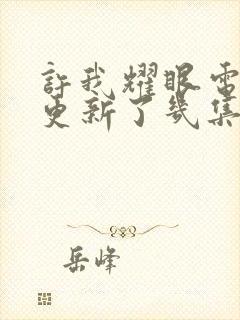 許我耀眼電
更新了幾集
岳峰